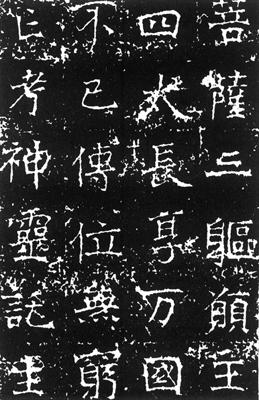 菩薩三軀願王
四大長享万國
不已傳位無窮
亡考神靈託生